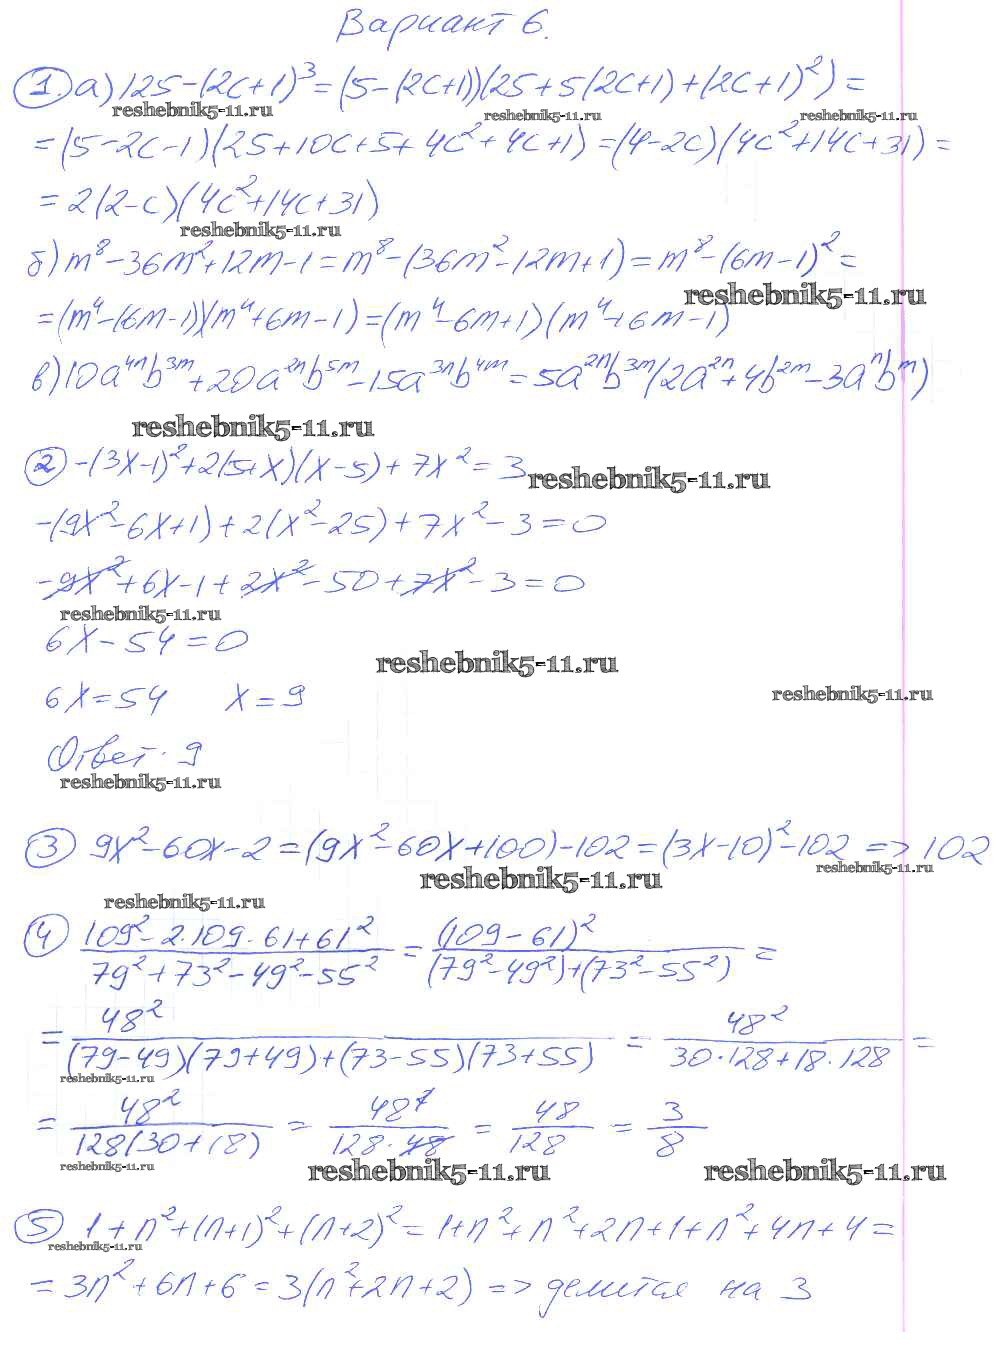 Вариант 6.
1. а) 125-(2c+1)³=(5-(2c+1))(25+5(2c+1)+(2c+1)²)=
reshebnik5-11.ru reshebnik5-11.ru reshebnik5-11.ru
=(5-2c-1)(25+10c+5+4c²+4c+1)=(4-2c)(4c²+14c+31)=
=2(2-c)(4c²+14c+31)
reshebnik5-11.ru
б) m⁸-36m²+12m-1=m⁸-(36m²-12m+1)=m⁸-(6m-1)²=
reshebnik5-11.ru
=(m⁴-(6m-1))(m⁴+6m-1)=(m⁴-6m+1)(m⁴+6m-1)
в) 10a⁴ⁿb³ᵐ+20a²ⁿb⁵ᵐ-15a³ⁿb⁴ᵐ=5a²ⁿb³ᵐ(2a²ⁿ+4b²ᵐ-3aⁿbᵐ)
reshebnik5-11.ru
2 -(3x-1)²+2(5+x)(x-5)+7x²=3
reshebnik5-11.ru
-(9x²-6x+1)+2(x²-25)+7x²-3=0
-9x²+6x-1+2x²-50+7x²-3=0
reshebnik5-11.ru
6x-54=0
reshebnik5-11.ru
6x=54 x=9
reshebnik5-11.ru
Ответ: 9
reshebnik5-11.ru
3 9x²-60x-2=(9x²-60x+100)-102=(3x-10)²-102 => 102
reshebnik5-11.ru
reshebnik5-11.ru
reshebnik5-11.ru
4 (109²-2·109·61+61²)/(79²+73²-49²-55²) = (109-61)²/((79²-49²)+(73²-55²)) =
= 48²/((79-49)(79+49)+(73-55)(73+55)) = 48²/(30·128+18·128) =
reshebnik5-11.ru
= 48²/(128(30+18)) = 48²/(128·48) = 48/128 = 3/8
reshebnik5-11.ru reshebnik5-11.ru reshebnik5-11.ru
5 1+n²+(n+1)²+(n+2)²=1+n²+n²+2n+1+n²+4n+4=
reshebnik5-11.ru
=3n²+6n+6=3(n²+2n+2) => делится на 3